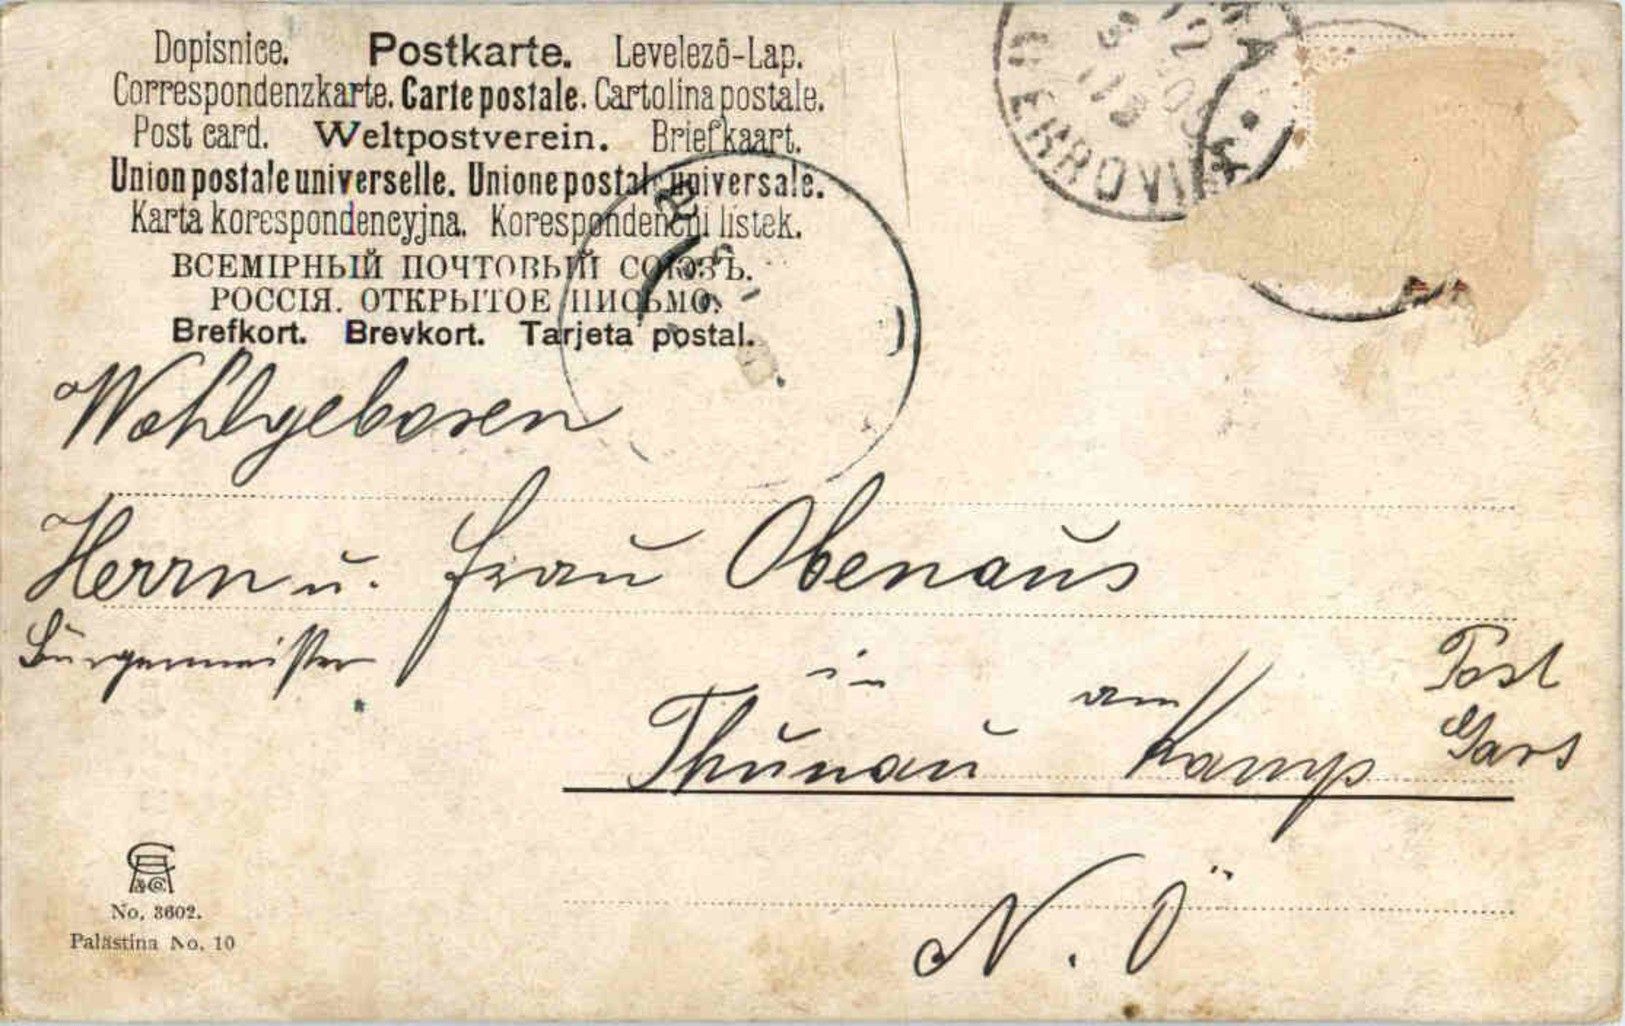 Dopisnice. Postkarte. Levelező-Lap.
Correspondenzkarte. Carte postale. Cartolina postale.
Post card. Weltpostverein. Briefkaart.
Union postale universelle. Unione postale universale.
Karta korespondencyjna. Korespondenčni listek.
ВСЕМІРНЫЙ ПОЧТОВЫЙ СОЮЗЪ.
РОССІЯ. ОТКРЫТОЕ ПИСЬМО.
Brefkort. Brevkort. Tarjeta postal.
Wohlgeboren
Herrn u. Frau Obenaus
Bürgermeister
in
Thunau am Kamp
Post
Gars
N. Ö
& Co.
No. 3602.
Palästina No. 10